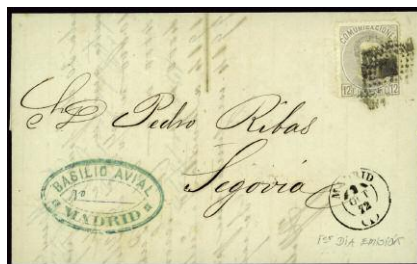 COMUNICACIONES
12 12
Sr. D. Pedro Ribas
Segovia
BASILIO AVIAL
Nº
MADRID
MADRID
OCT
72
(1)
1er DIA EMISIÓN